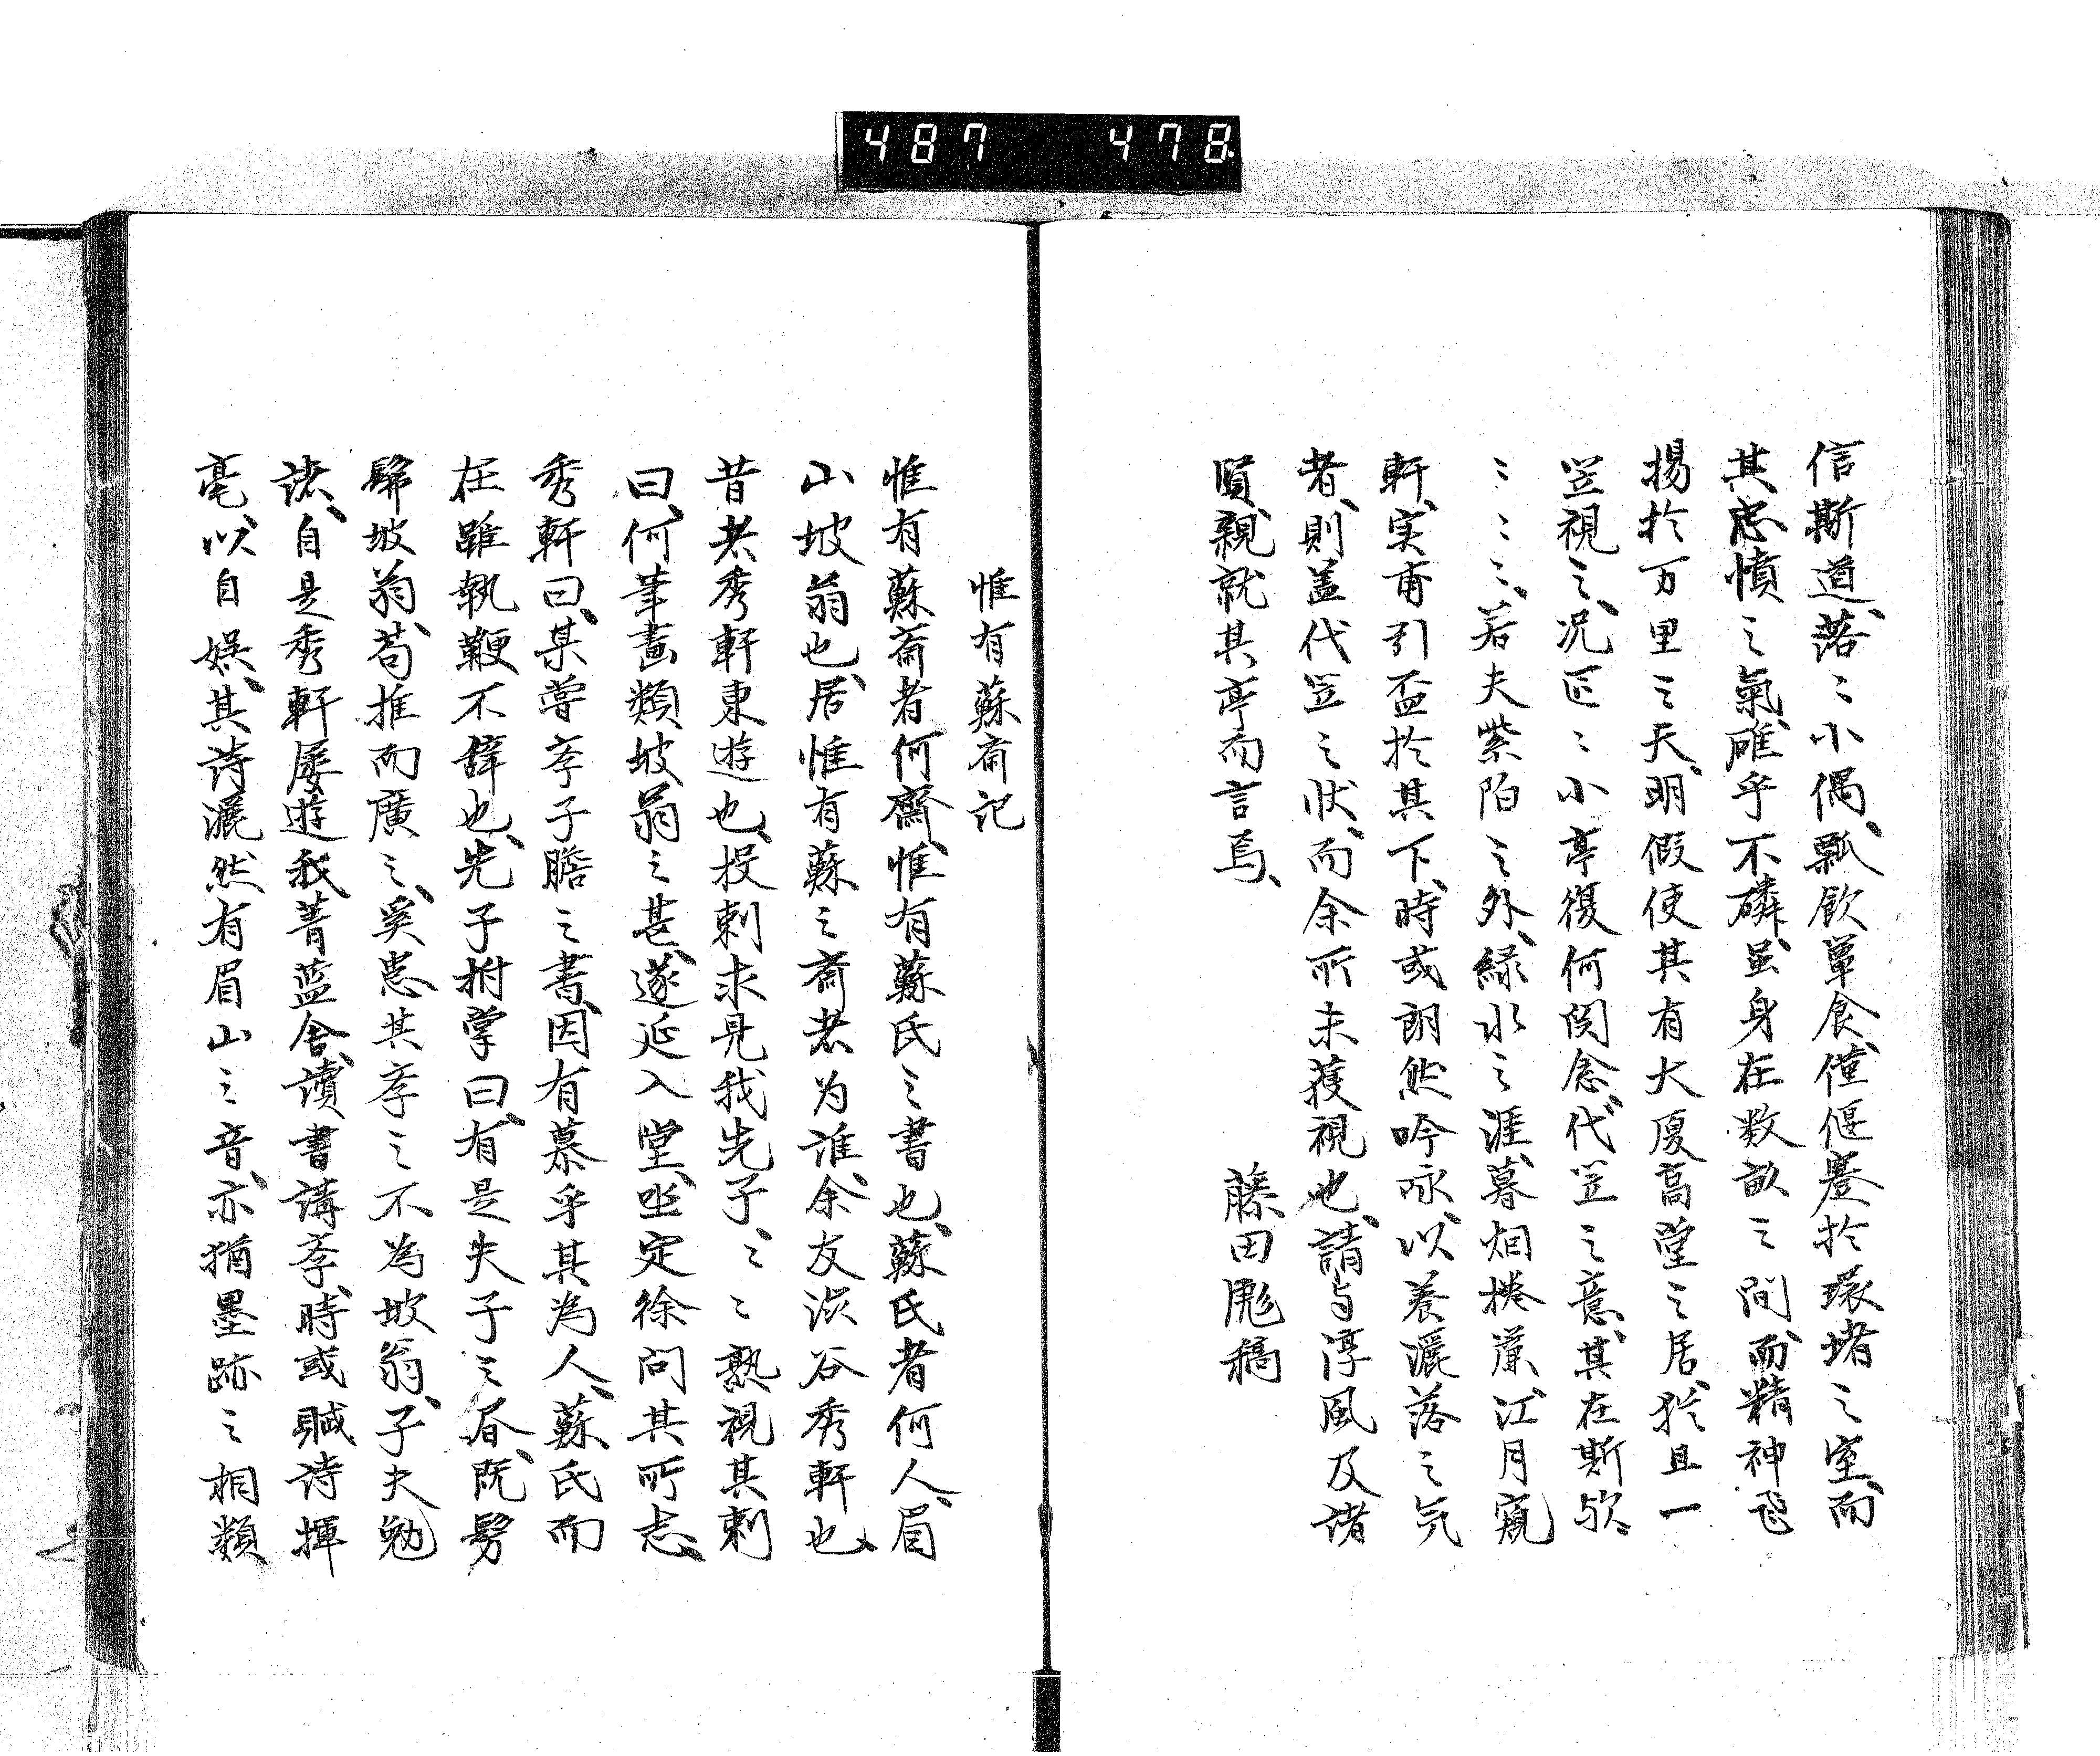 487 478
信斯道、落〻小偶、瓢飲簞食、僅偃蹇於環堵之室、而
其忠憤之氣、確乎不磷、虽身在数畝之間、而精神飛
揚於万里之天、明假使其有大厦高堂之居、猶且一
笠視之、况区〻小亭復何関念、代笠之意、其在斯欤、
〻〻〻、若夫紫陌之外、緑水之涯、暮烟捲簾、江月窺
軒、実甫引盃於其下、時或朗然吟咏、以養灑落之気
者、則蓋代笠之状、而余所未獲視也、請与淳風及諸
賢、親就其亭而言焉、
藤田彪稿
惟有蘇斎記
惟有蘇斎者何斎、惟有蘇氏之書也、蘇氏者何人、眉
山坡翁也、居惟有蘇之斎者为誰、余友渋谷秀軒也、
昔者秀軒東遊也、投刺求見我先子、〻〻熟視其刺
曰、何筆畫類坡翁之甚、遂延入堂、坐定徐問其所志、
秀軒曰、某嘗孝子瞻之書、因有慕乎其為人、蘇氏而
在雖執鞭不辞也、先子拊掌曰、有是失子之眉、既髣
髴坡翁、苟推而廣之、奚患其孝之不為坡翁、子夫勉
諸、自是秀軒屡遊我菁藍舎、讀書講孝、時或賦詩揮
毫、以自娯、其詩灑然有眉山之音、亦猶墨跡之相類